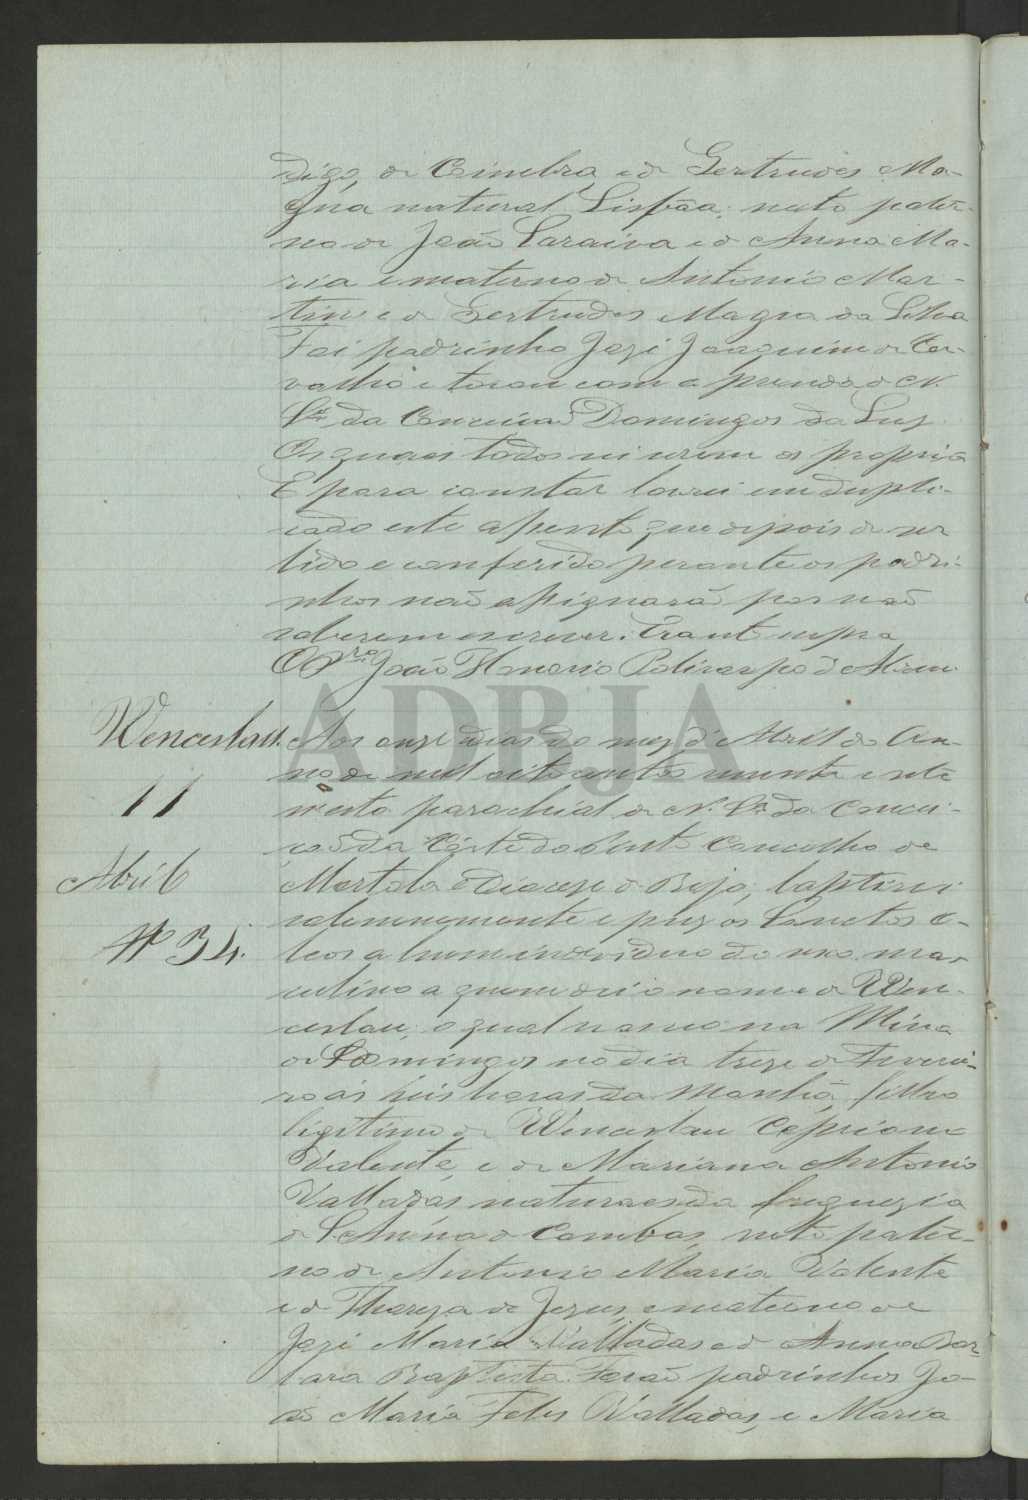 digo, de Coimbra, e de Gertrudes Ma-
gna natural Lisbôa; neto pater-
no de João Saraiva e d'Anna Ma-
ria e materno de Antonio Mar-
tins e de Gertrudes Magna da Silva
Foi padrinho José Joaquim de Car-
valho e tocou com a prenda de N.
Srª da Conceicaõ Domingos da Luz.
Os quaes todos
E para constar lavrei em dupli-
cado este assento, que depois de ser
lido e conferido perante os padri-
nhos naõ assignaraõ por naõ
saberem escrever. Era ut supra
O Pr. João Honorio Policarpo d'
ADBJA
Wenceslau.
11
Abril
Nº 34.
Aos onze dias do mez d'Abril do An-
no de mil oito centos e sete
nesta parochial de N. Srª da Concei-
caõ da Côrte do Pinto Concelho de
Mertola e Diocese de Beja, baptisei
solemnemente e puz os Sanctos O-
leos a hum individuo do sexo mas-
culino a quem dei o nome de Wen-
ceslau, o qual nasceu na Mina
de S. Domingos no dia treze de Feverei-
ro ás seis horas da manhã, filho
legitimo de Wenceslau Cypriano
Valente, e de Marianna Antonia
Valladas naturaes da freguezia
de Sant'Anna de Cambas, neto pater-
no de Antonio Maria Valente
e de Thereza de Jezus, e materno de
José Maria Valladas e d'Anna Bar-
bara Baptista. Foraõ padrinhos Jo-
aõ Maria Felis Valladas, e Maria